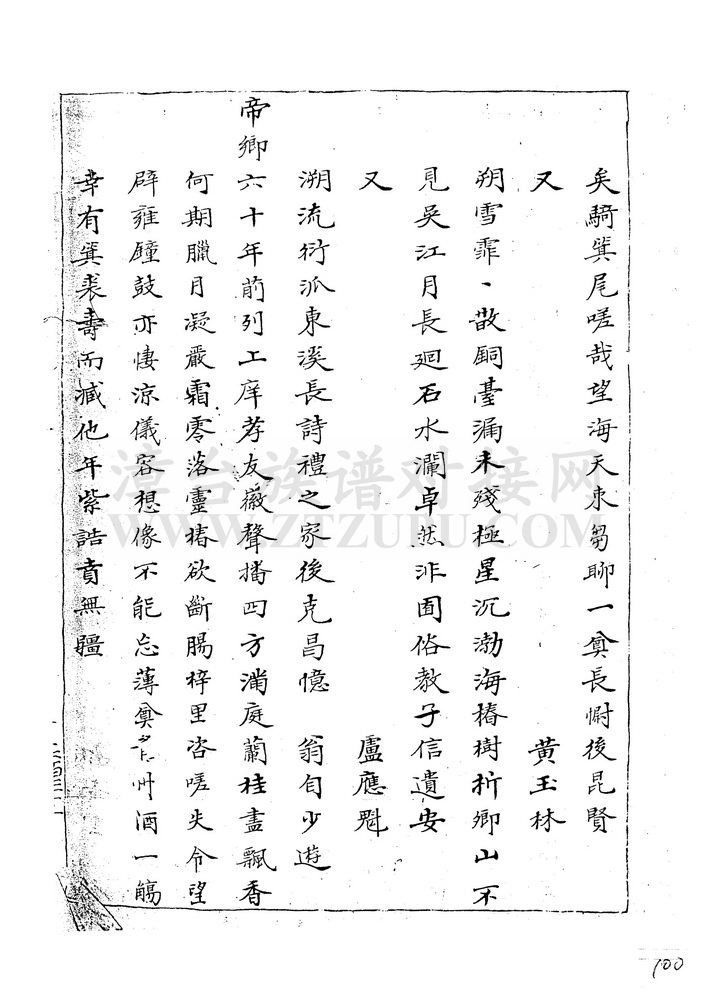 矣騎箕尾嗟哉望海天朿芻聊一奠長慰後昆賢
又 黃玉林
朔雪霏、散銅臺漏未殘極星沉渤海椿樹折鄉山不
見吳江月長廻石水瀾卓然非固俗教子信遺安
又 盧應魁
溯流衍派東溪長詩禮之家後克昌憶 翁自少遊
帝鄉六十年前列上庠孝友徽聲播四方滿庭蘭桂盡飄香
何期臘月凝嚴霜零落靈椿欲斷腸梓里咨嗟失令望
辟雍鐘鼓亦悽涼儀容想像不能忘薄奠 州酒一觴
幸有箕裘壽而臧他年紫誥賁無疆
漳台族谱对接网
WWW.ZTZUPU.COM
100